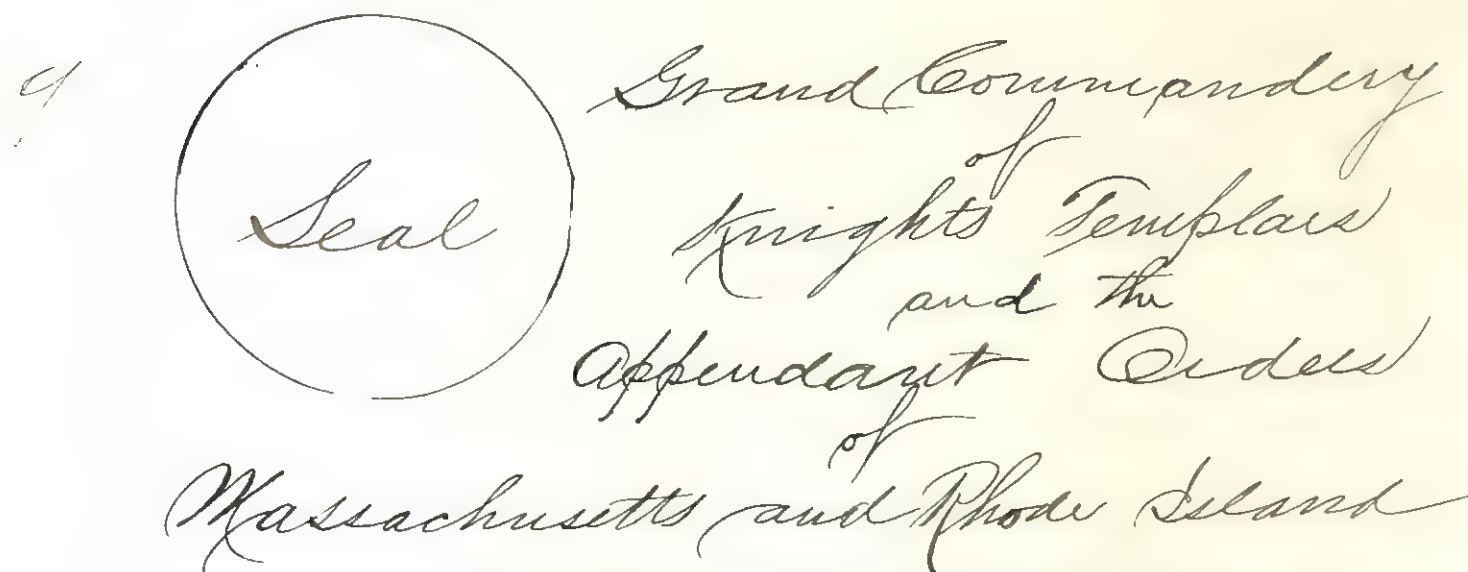 Seal
Grand Commandery
of
Knights Templars
and the
Appendant Orders
of
Massachusetts and Rhode Island